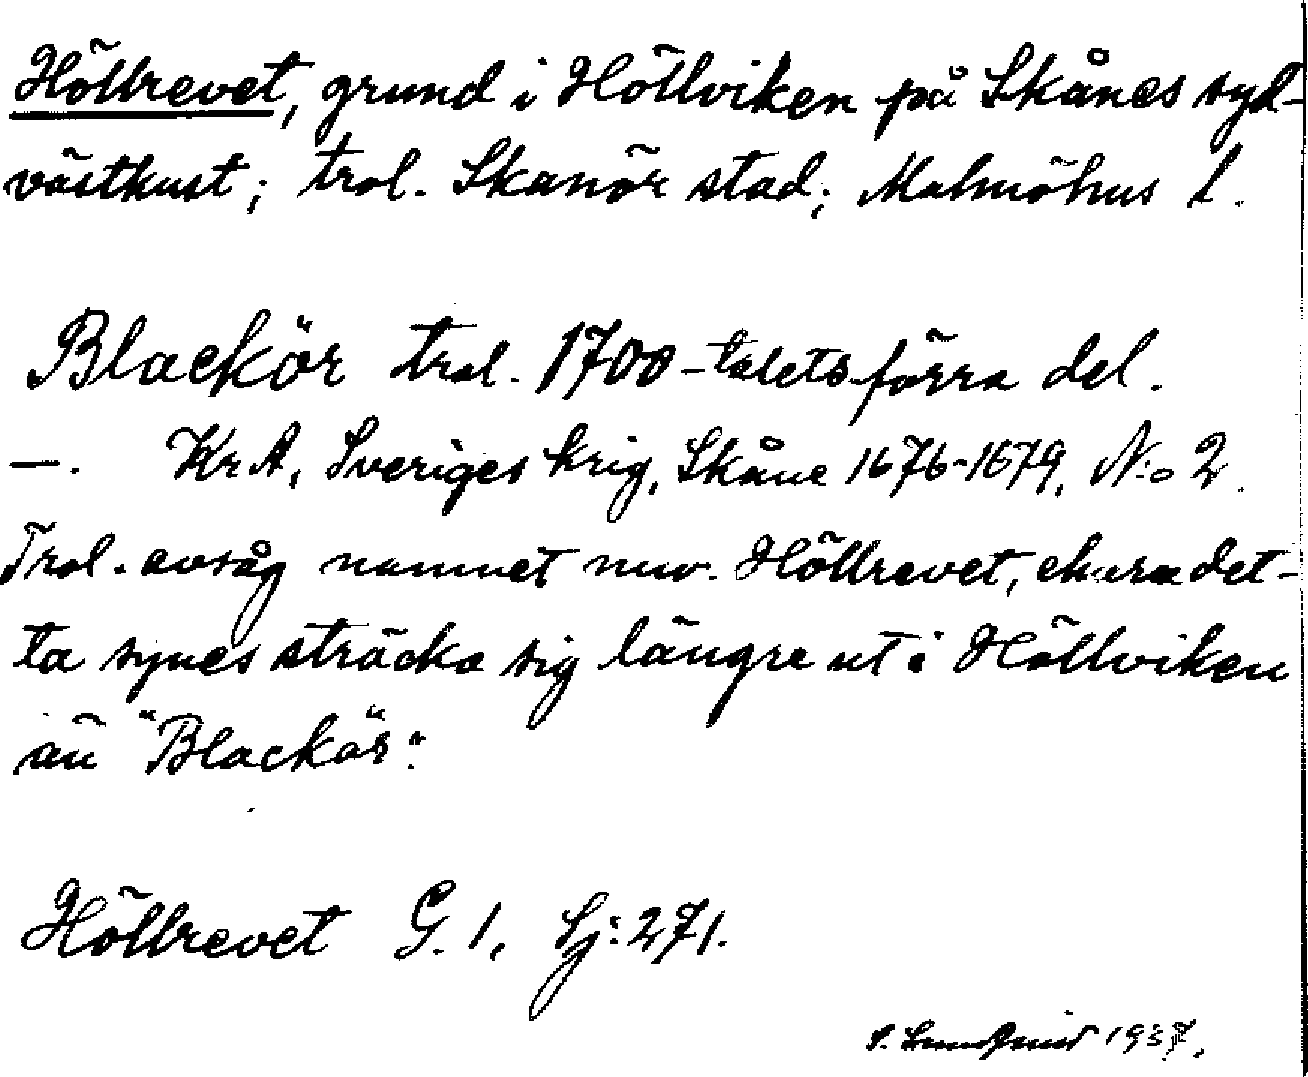 Höllrevet, grund i Höllviken på Skånes syd-
västkust; trol. Skanör stad; Malmöhus l.
Blackör trol. 1700-talets förra del.
—. KrA, Sveriges krig, Skåne 1676-1679, N:o 2.
Trol. avsåg namnet nuv. Höllrevet, ehuru det-
ta synes sträcka sig längre ut i Höllviken
än "Blackör".
Höllrevet G. 1, Sj: 271.
1937.